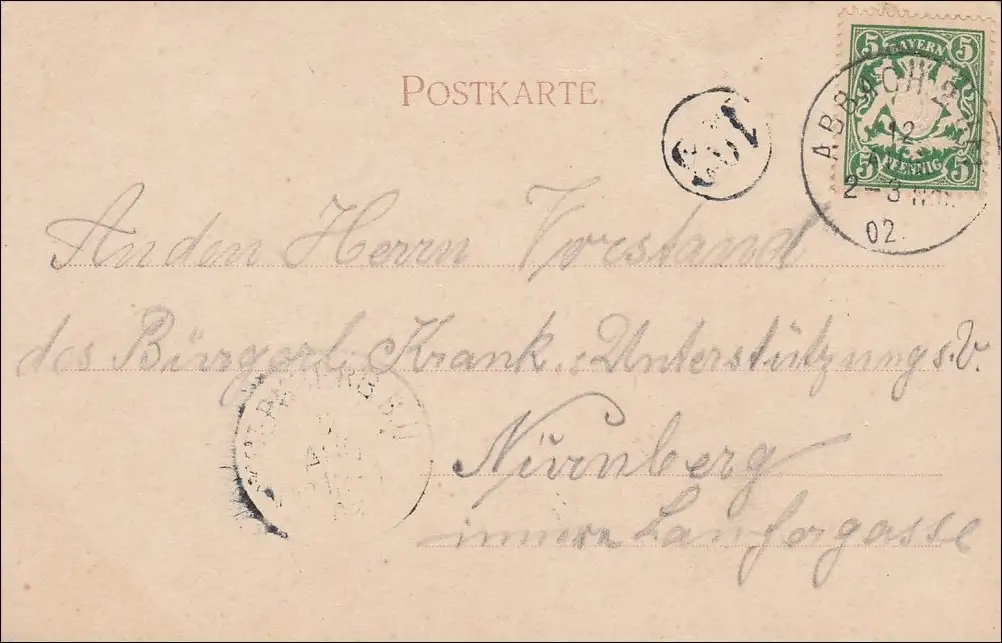 POSTKARTE.
5 BAYERN 5
5 PFENNIG 5
ABBACH
12
2-3 Nm.
02.
An den Herrn Vorstand
des Bürgerl. Krank.-Unterstützungs.V.
Nürnberg
innere Laufergasse